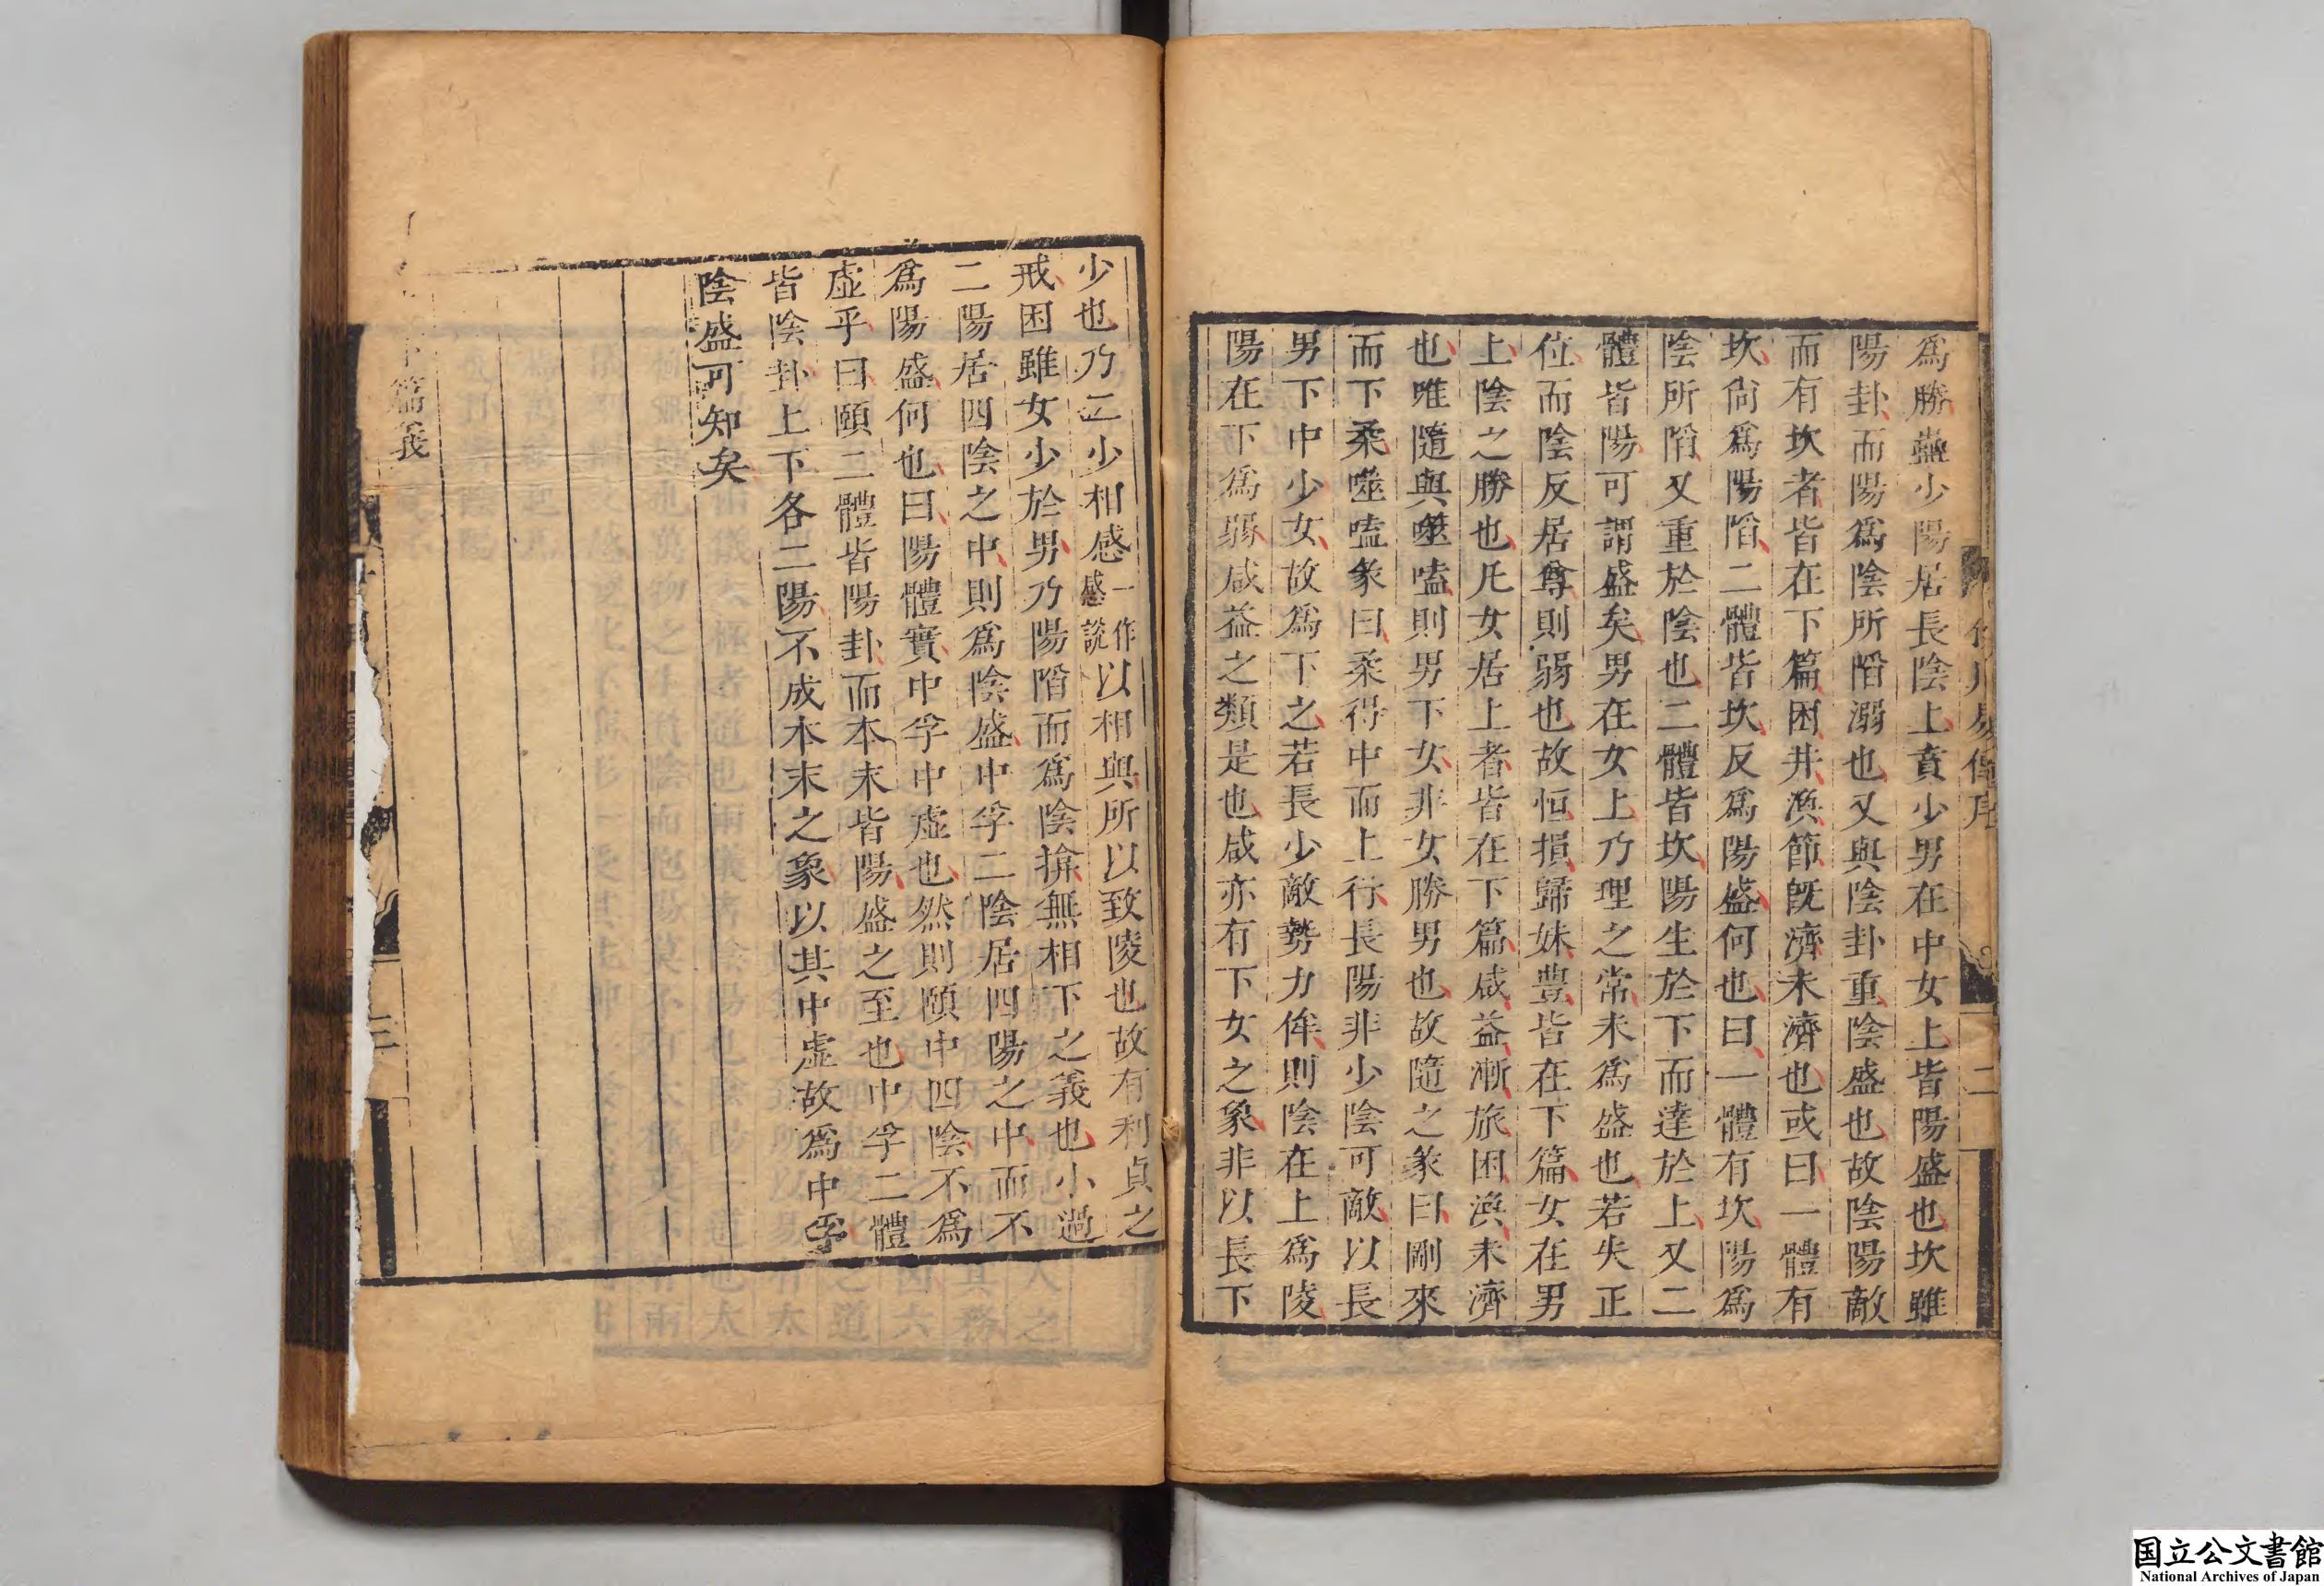 為勝蠱少陽居長陰上賁少男在中女上皆陽盛也坎雖
陽卦而陽為陰所陷溺也又與陰卦重陰盛也故陰陽敵
而有坎者皆在下篇困井渙節旣濟未濟也或曰一體有
坎尙為陽陷二體皆坎反為陽盛何也曰一體有坎陽為
陰所陷又重於陰也二體皆坎陽生於下而達於上又二
體皆陽可謂盛矣男在女上乃理之常未為盛也若失正
位而陰反居尊則弱也故恒損歸妹豊皆在下篇女在男
上陰之勝也凡女居上者皆在下篇咸益漸旅困渙未濟
也唯隨與噬嗑則男下女非女勝男也故隨之彖曰剛來
而下柔噬嗑彖曰柔得中而上行長陽非少陰可敵以長
男下中少女故為下之若長少敵勢力侔則陰在上為陵
陽在下為弱咸益之類是也咸亦有下女之象非以長下
二
少也乃二少相感一作感說以相與所以致陵也故有利貞之
戒困雖女少於男乃陽陷而為陰揜無相下之義也小過
二陽居四陰之中則為陰盛中孚二陰居四陽之中而不
為陽盛何也曰陽體實中孚中虛也然則頤中四陰不為
虛乎曰頤二體皆陽卦而本末皆陽盛之至也中孚二體
皆陰卦上下各二陽不成本末之象以其中虛故為中孚
陰盛可知矣
下篇義
三
国立公文書館
National Archives of Japan